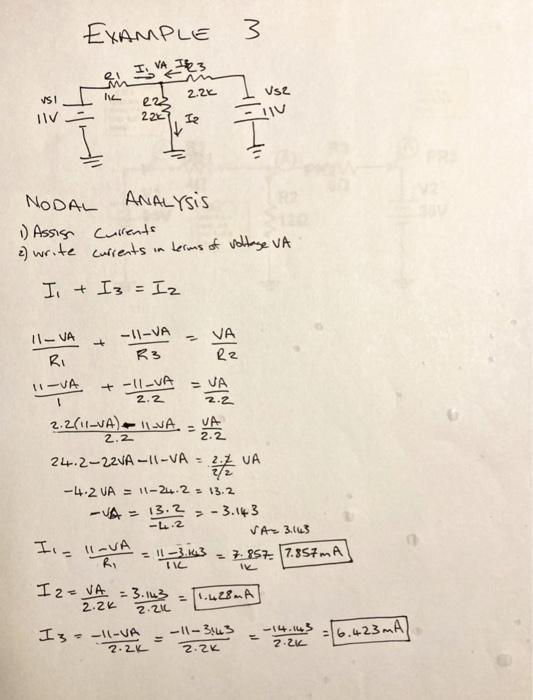 EXAMPLE 3
I1 VA I3
R1 R3
1K 2.2K
VS1 R2 VS2
11V 22K I2 11V
NODAL ANALYSIS
1) Assign currents
2) write currents in terms of voltage VA
I1 + I3 = I2
11-VA/R1 + -11-VA/R3 = VA/R2
11-VA/1 + -11-VA/2.2 = VA/2.2
2.2(11-VA) - 11-VA/2.2 = VA/2.2
24.2-22VA-11-VA = 2.2/2/2 VA
-4.2VA = 11-24.2 = 13.2
-VA = 13.2/-4.2 = -3.143
VA = 3.143
I1 = 11-VA/R1 = 11-3.143/1K = 7.857/1K = 7.857mA
I2 = VA/2.2K = 3.143/2.2K = 1.428mA
I3 = -11-VA/2.2K = -11-3.143/2.2K = -14.143/2.2K = 6.423mA